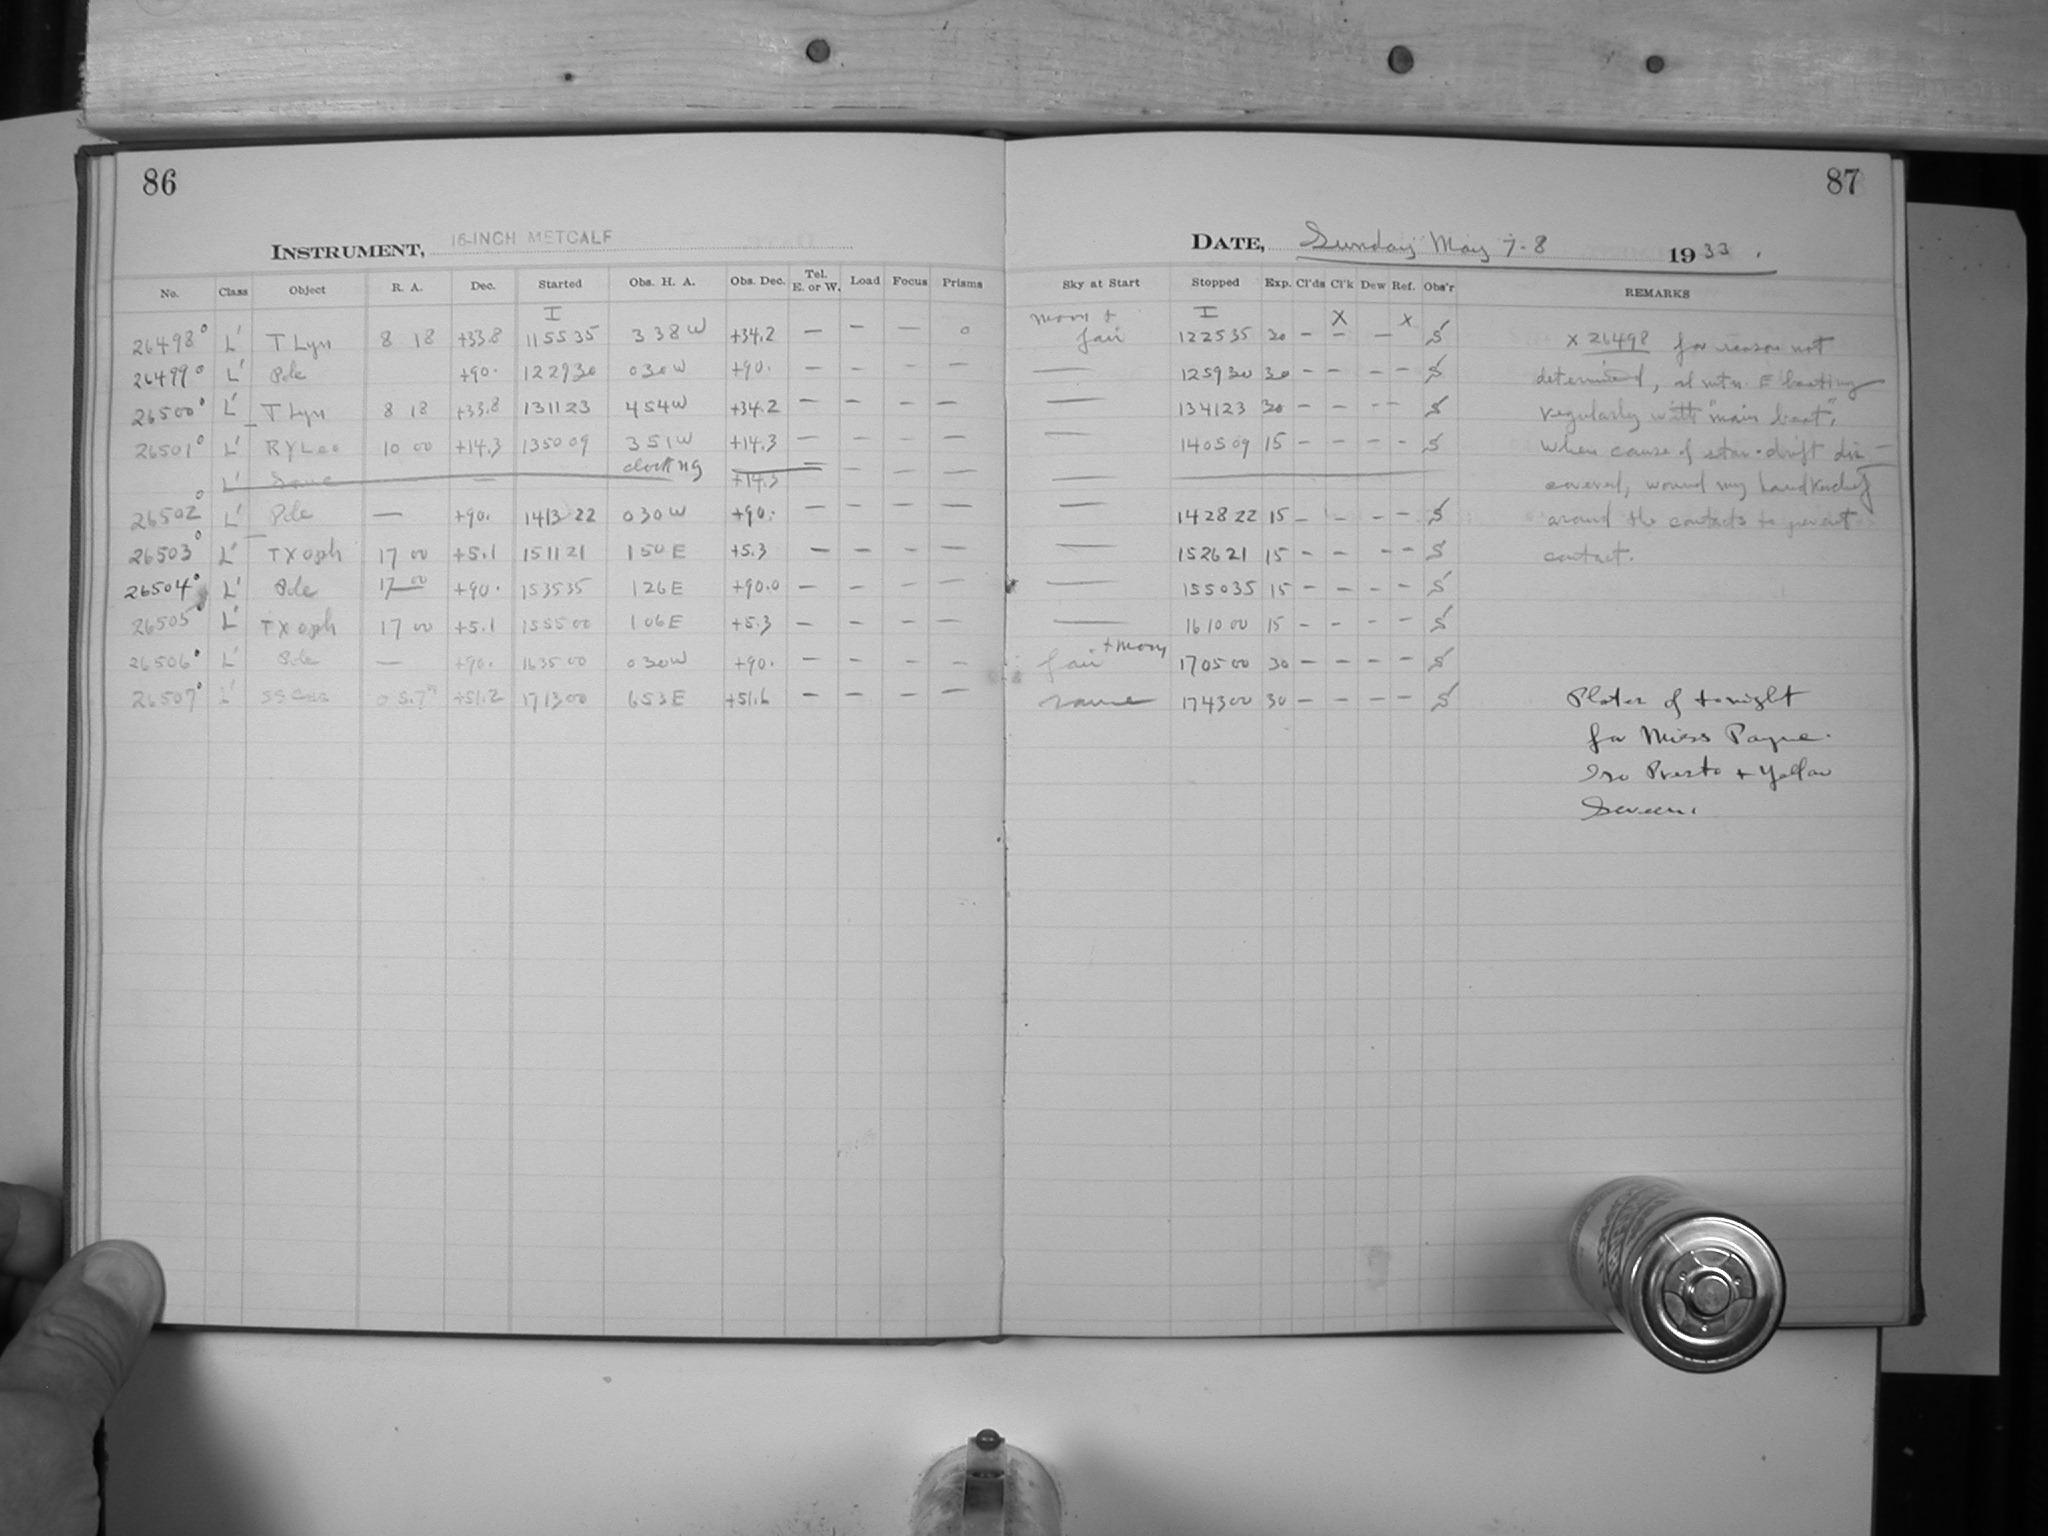 86
87
INSTRUMENT, 16-INCH METCALF
DATE, Sunday May 7-8 1933.
No. Class Object R. A. Dec. Started Obs. H. A. Obs. Dec. Tel. E. or W. Load Focus Prisms Sky at Start Stopped Exp. Cl'ds Cl'k Dew Ref. Obs'r REMARKS
I moon + I X x
26498° L' T Lyn 8 18 +33.8 115535 338W +34.2 — — — 0 fair 122535 30 — — — S x 26498 for reason not
26499° L' Pole +90. 122930 030W +90. — — — — — 125930 30 — — — — S determined, at mtn. E beating
26500° L' T Lyn 8 18 +33.8 131123 454W +34.2 — — — — — 134123 30 — — — — S regularly with "main beat",
26501° L' RY Leo 10 00 +14.3 135009 351W +14.3 — — — — — 140509 15 — — — — S When cause of star-drift dis-
L' Same — clock ng +14.3 — — — — — covered, wound my handkerchief
26502° L' Pole — +90. 141322 030W +90. — — — — — 142822 15 — — — — S around the contacts to prevent
26503° L' TX Oph 17 00 +5.1 151121 150E +5.3 — — — — — 152621 15 — — — — S contact.
26504° L' Pole 17 00 +90. 153535 126E +90.0 — — — — — 155035 15 — — — — S
26505° L' TX Oph 17 00 +5.1 155500 106E +5.3 — — — — — 161000 15 — — — — S
26506° L' Pole — +90. 163500 030W +90. — — — — fair + moon 170500 30 — — — — S
26507° L' SS Cas 0 5.7 +51.2 171300 653E +51.6 — — — — same 174300 30 — — — — S Plates of tonight
for Miss Payne.
Iso Presto + Yellow
Screen.